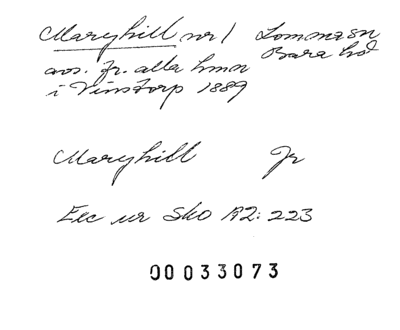 Maryhill nr 1 Lomma sn
avs. fr. alla hmn Bara hd
i Vinstorp 1889
Maryhill Jr
Exc ur Sko A2: 223
00033073